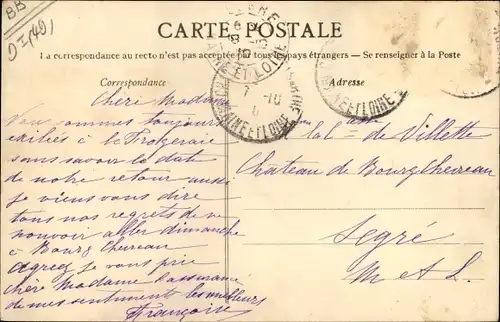 BB
CARTE POSTALE
La correspondance au recto n'est pas acceptée par tous les pays étrangers — Se renseigner à la Poste
Correspondance
Adresse
Chère Madame
Nous sommes toujours
exilées à la
sans savoir la date
de notre retour aussi
je viens vous dire
tous nos regrets de ne
pouvoir aller dimanche
à Bourg Chevreau
Agréez je vous prie
chère Madame l'assurance
de mes sentiments les meilleurs
Françoise
de Villette
Chateau de Bourg Chevreau
Segré
M et L.
ET LOIRE
MAINE ET LOIRE
MAINE ET LOIRE